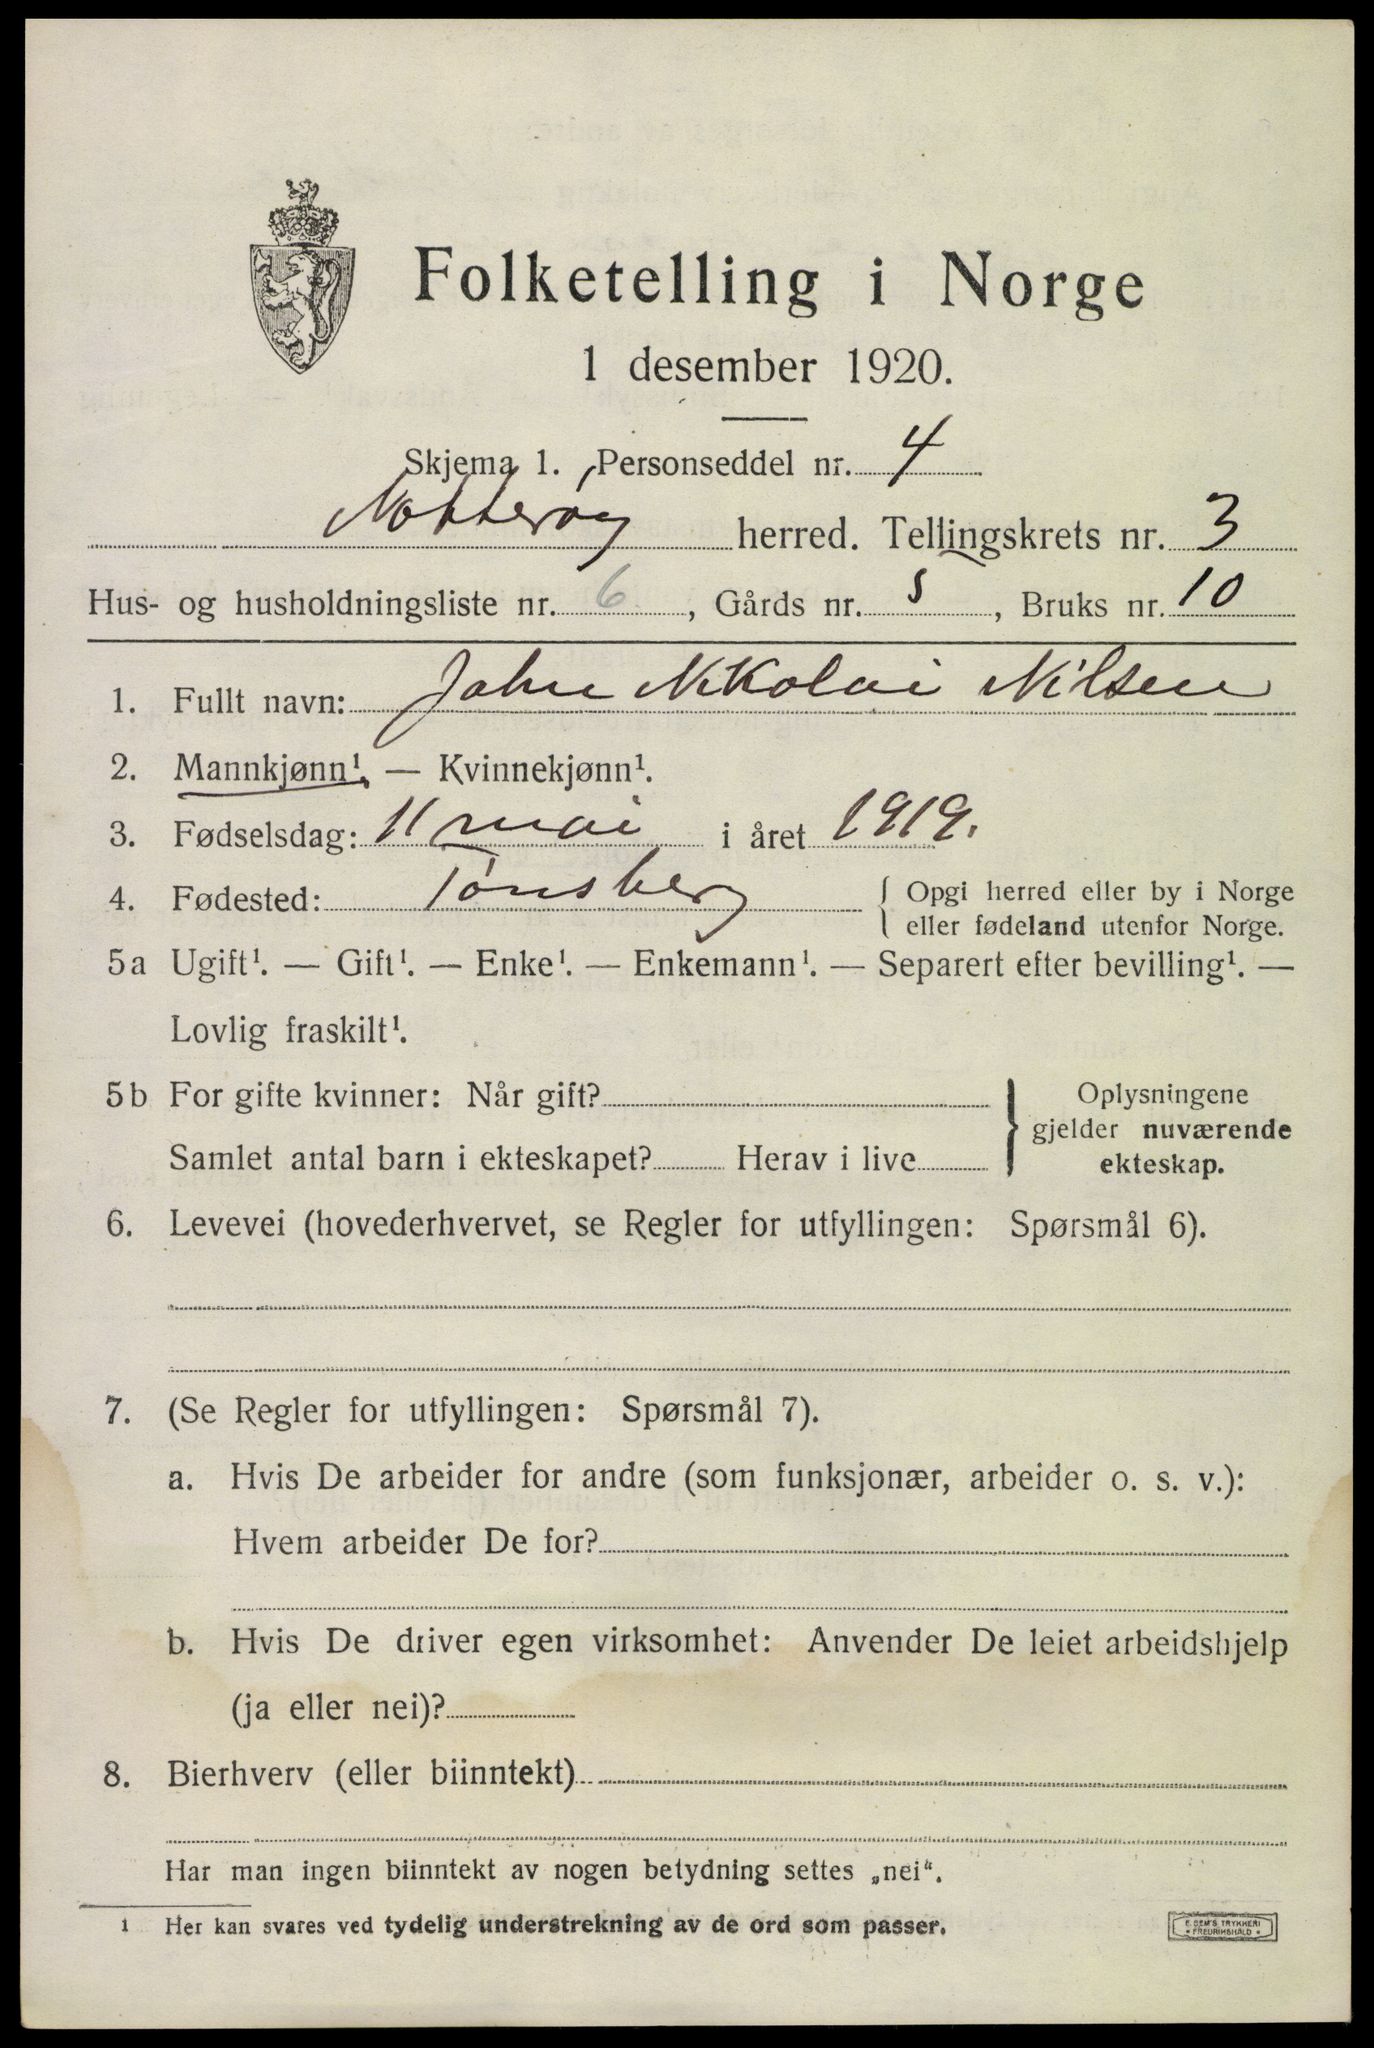 Folketelling i Norge
1 desember 1920.
Skjema 1. Personseddel nr. 4
Nøtterøy herred. Tellingskrets nr. 3
Hus- og husholdningsliste nr. 6, Gårds nr. 5, Bruks nr. 10
1. Fullt navn: John Nikolai Nilsen
2. Mannkjønn¹. — Kvinnekjønn¹.
3. Fødselsdag: 11 mai i året 1919.
4. Fødested: Tønsberg { Opgi herred eller by i Norge
eller fødeland utenfor Norge.
5a Ugift¹. — Gift¹. — Enke¹. — Enkemann¹. — Separert efter bevilling¹. —
Lovlig fraskilt¹.
5b For gifte kvinner: Når gift?
Samlet antal barn i ekteskapet? Herav i live
} Oplysningene
gjelder nuværende
ekteskap.
6. Levevei (hovederhvervet, se Regler for utfyllingen: Spørsmål 6).
7. (Se Regler for utfyllingen: Spørsmål 7).
a. Hvis De arbeider for andre (som funksjonær, arbeider o. s. v.):
Hvem arbeider De for?
b. Hvis De driver egen virksomhet: Anvender De leiet arbeidshjelp
(ja eller nei)?
8. Bierhverv (eller biinntekt)
Har man ingen biinntekt av nogen betydning settes „nei“.
1 Her kan svares ved tydelig understrekning av de ord som passer.
E. SEM'S TRYKKERI
FREDRIKSHALD